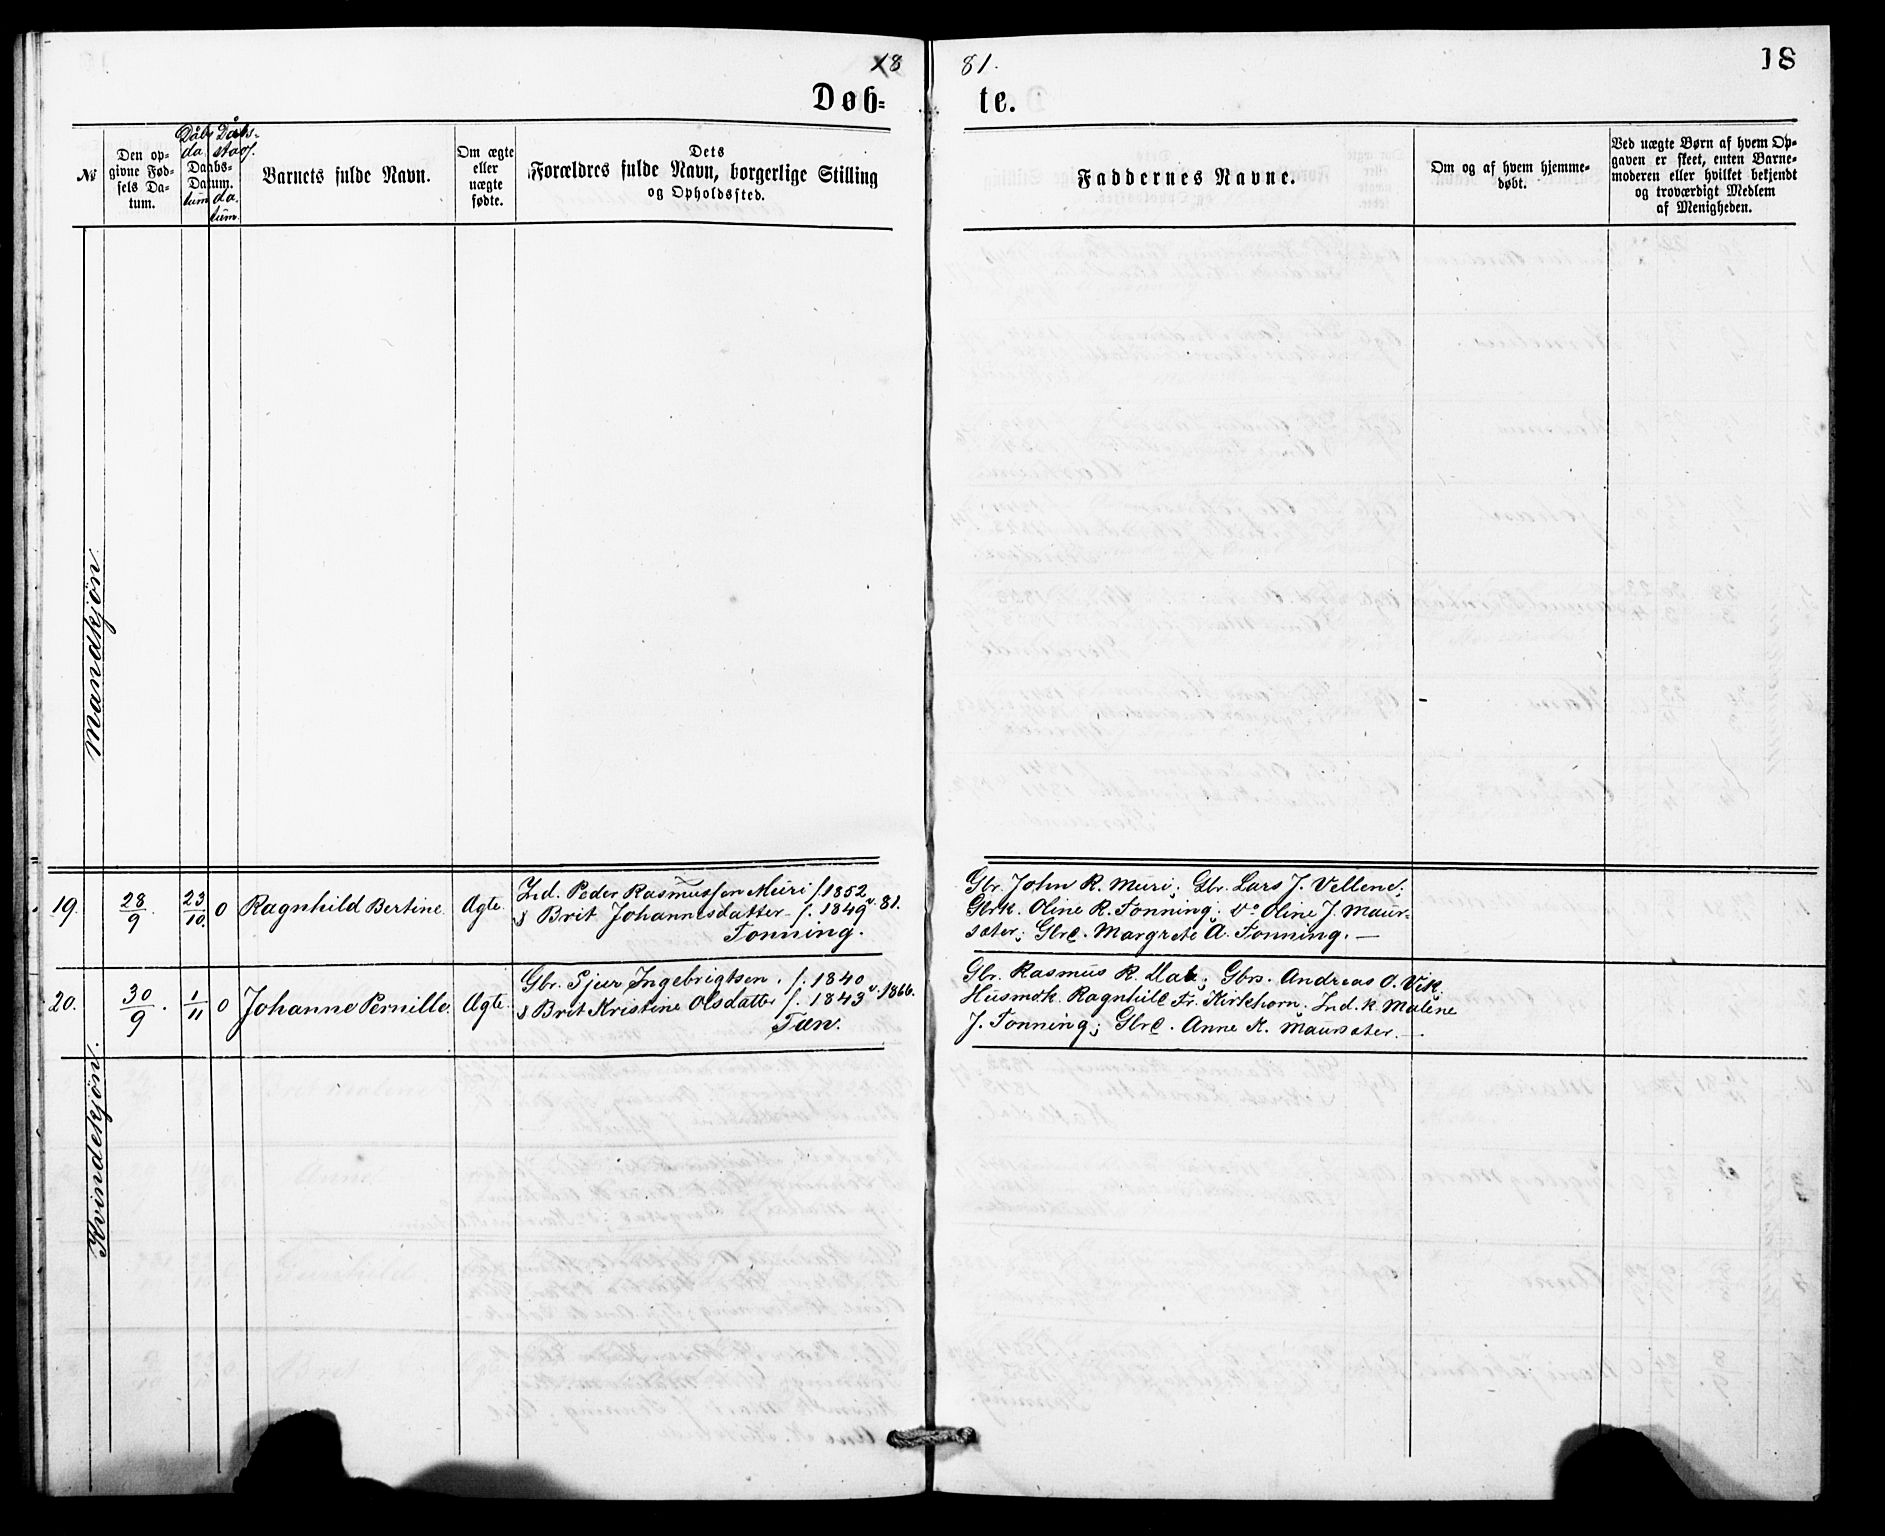 18 81.
18
Døb-te.
№
Den op-
givne Fød-
sels Da-
tum.
Dåbs
da
tum
Daabs-
Datum.
Dåbs-
sted.
da.
tum.
Barnets fulde Navn.
Om ægte
eller
uægte
fødte.
Dets
Forældres fulde Navn, borgerlige Stilling
og Opholdssted.
Faddernes Navne.
Om og af hvem hjemme-
døbt.
Ved uægte Børn af hvem Op-
gaven er skeet, enten Barne-
moderen eller hvilket bekjendt
og troværdigt Medlem
af Menigheden.
Mandkjøn.
19. 28/9. 23/10. 0 Ragnhild Bertine. Ægte. Ind. Peder Rasmussen Muri f. 1852
& Brit Johannesdatter f. 1849 v. 81.
Tonning.
Gbr. John R. Muri; Gbr. Lars J. Vellene;
Gbrk. Oline R. Tonning; do Oline J. Maur-
sæter; Gbre. Margrete A. Tonning. —
20. 30/9. 1/11 0 Johanne Pernille. Ægte. Gbr. Sjur Ingebrigtsen. f. 1840
& Brit Kristine Olsdatter f. 1843 v. 1866.
Tæn.
Gbr. Rasmus R. ; Gbrs. Andreas O. Vik;
Husmdk. Ragnhild Fr. Kirkhorn. Ind. k. Malene
J. Tonning; Gbre. Anne K. Maursæter. —
Kvindekjøn.